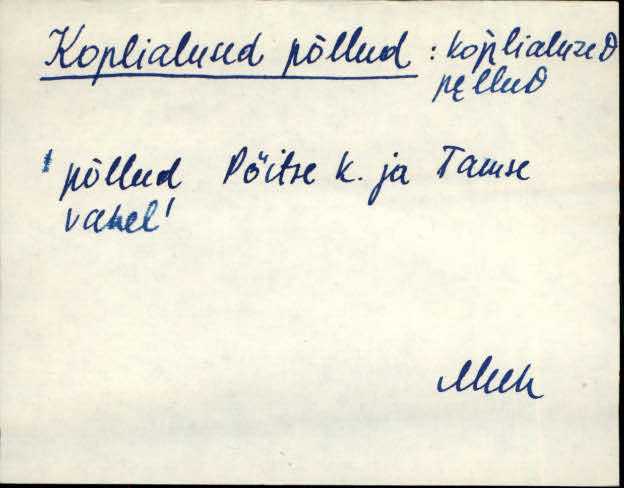 Koplialused põllud : kop̀lialuzeD
pęlluD
' põllud Pöitse k. ja Tamse
vahel'
Muh